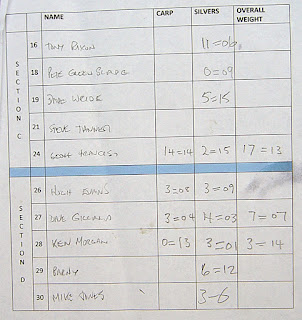 NAME CARP SILVERS OVERALL WEIGHT
SECTION C
16 TONY RIXON 11=06
18 PETE 0=09
19 5=15
21 STEVE TANNER
24 GEOFF FRANCIS 14=14 2=15 17=13
SECTION D
26 HUGH EVANS 3=08 3=09
27 3=04 4=03 7=07
28 KEN MORGAN 0=13 3=01 3=14
29 6=12
30 MIKE 3-6